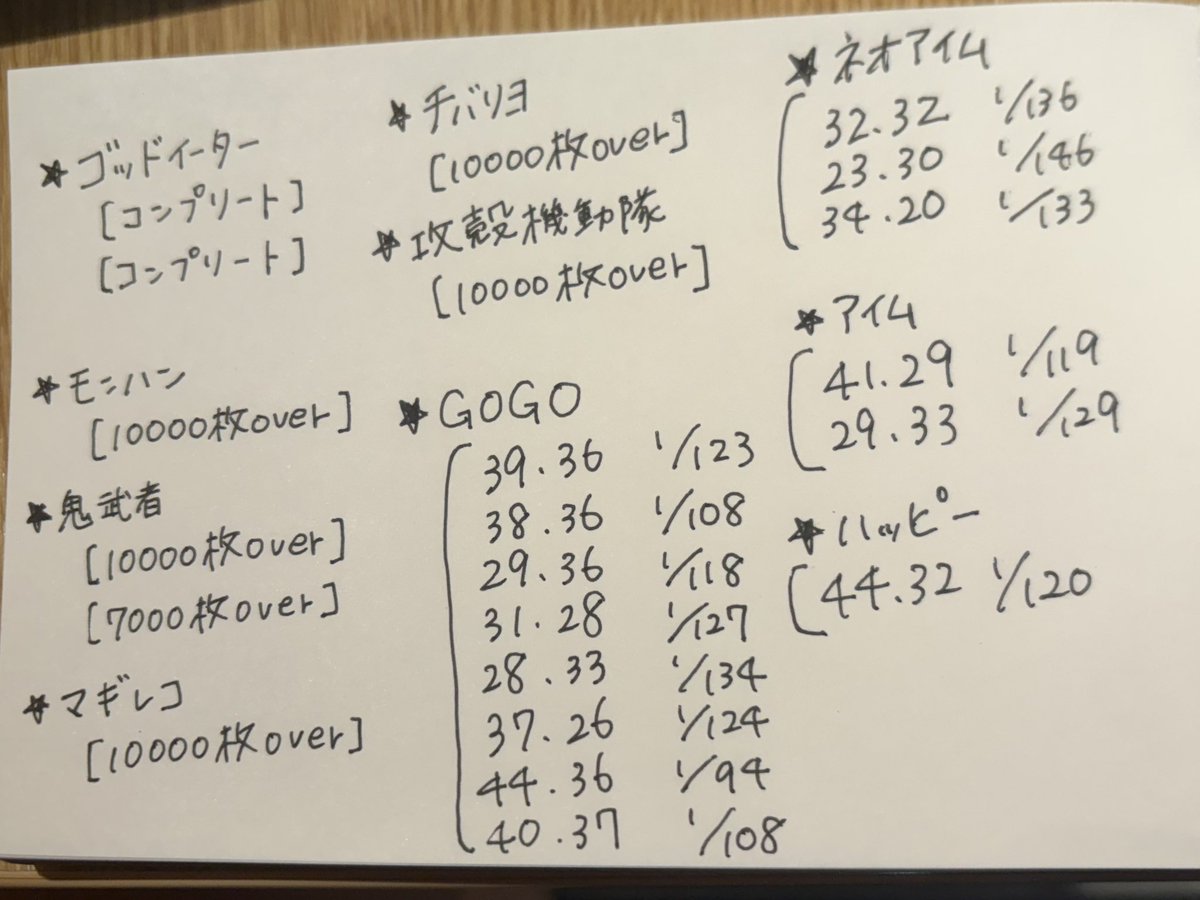 ★ゴッドイーター
[コンプリート]
[コンプリート]
★モンハン
[10000枚over]
★鬼武者
[10000枚over]
[7000枚over]
★マギレコ
[10000枚over]
★チバリヨ
[10000枚over]
★攻殻機動隊
[10000枚over]
★GOGO
39.36 1/123
38.36 1/108
29.36 1/118
31.28 1/127
28.33 1/134
37.26 1/124
44.36 1/94
40.37 1/108
★ネオアイム
32.32 1/136
23.30 1/146
34.20 1/133
★アイム
41.29 1/119
29.33 1/129
★ハッピー
44.32 1/120